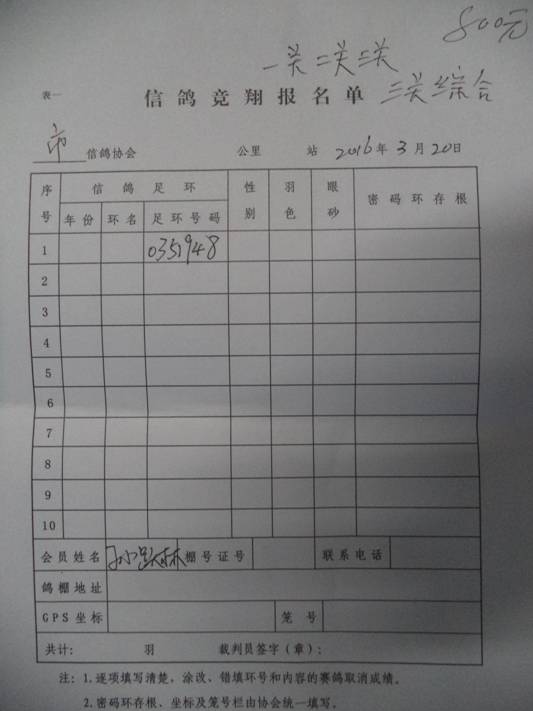 800元
一关 二关 三关
表一
信鸽竞翔报名单 三关综合
市 信鸽协会 公里 站 2016年3月20日
序号 信鸽足环 性别 羽色 眼砂 密码环存根
年份 环名 足环号码
1 0351948
2
3
4
5
6
7
8
9
10
会员姓名 棚号证号 联系电话
鸽棚地址
GPS坐标 笼号
共计: 羽 裁判员签字(章):
注: 1.逐项填写清楚,涂改、错填环号和内容的赛鸽取消成绩。
2.密码环存根、坐标及笼号栏由协会统一填写。